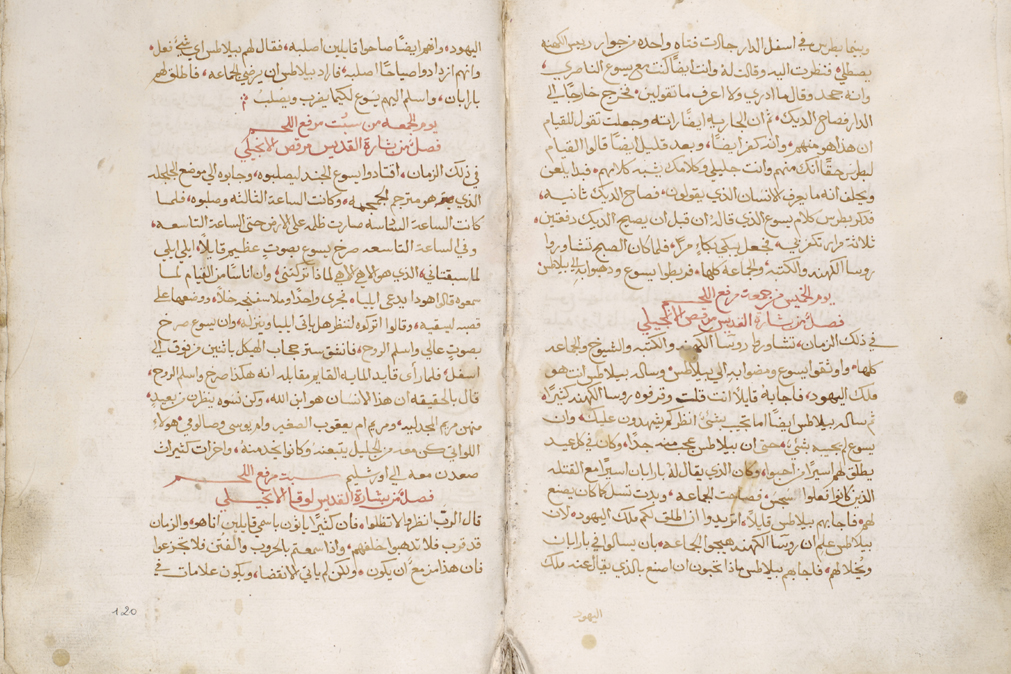 وبينما بطرس في اسفل الدار جات فتاه واحده من جوار رييس الكهنه
يصطلي فنظرت اليه وقالت له وانت ايضًا كنت مع يسوع الناصري
وانه جحد وقال ما ادري ولا اعرف ما تقولين فخرج خارجًا الى
الدار فصاح الديك ثم ان الجاريه ايضًا راته وجعلت تقول للقيام
ان هذا هو منهم وانه كفر ايضًا وبعد قليل ايضًا قالوا القيام
لبطرس حقًا انك منهم وانت جليلي وكلامك يشبه كلامهم فبدا يلعن
ويحلف انه ما يعرف الانسان الذي يقولون فصاح الديك ثانيه
فذكر بطرس كلام يسوع الذي قال له ان قبل ان يصيح الديك دفعتين
ثلاثة مرار تكفر بي فجعل يبكي بكاءً مرًا فلما كان الصبح تشاوروا
روسا الكهنه والكتبه والجماعة كلها فربطوا يسوع وذهبوا به الى بيلاطس
يوم الخميس من جمعت مرفع اللحم
فصل من بشارة القديس مرقص الانجيلي
في ذلك الزمان تشاوروا روسا الكهنه والكتبه والشيوخ والجماعه
كلها واوثقوا يسوع ومضوا به الى بيلاطس وساله بيلاطس انت هو
ملك اليهود فاجابه قايلاً انت قلت وقرفوه روسا الكهنه كثيرًا
ثم ساله بيلاطس ايضًا اما تجيب بشي انظر كم يشهدون عليك وان
يسوع لم يجيبه بشي حتى ان بيلاطس عجب منه جدًا وكان في كل عيد
يطلق لهم اسيرًا من احبوا وكان الذي يقال له بارابان اسيرًا مع القتله
الذين كانوا فعلوا السجس فصاحت الجماعه وبدت تسل كما كان يصنع
لهم فاجابهم بيلاطس قايلاً اتريدوا ان اطلق لكم ملك اليهود لان
بيلاطس علم ان روسا الكهنه هيجوا الجماعه بان يسالوا في بارابان
ويخلا لهم فاجابهم بيلاطس ماذا تحبون ان اصنع بالذي يقال عنه ملك
اليهود
اليهود وانهم ايضًا صاحوا قايلين اصلبه فقال لهم بيلاطس اي شي فعل
وانهم ازدادوا صياحًا اصلبه فاراد بيلاطس ان يرضي الجماعه فاطلق لهم
بارابان واسلم اليهم يسوع لكيما يضرب ويصلب
يوم الجمعه من سبت مرفع اللحم
فصل من بشارة القديس مرقص الانجيلي
في ذلك الزمان اقتادوا يسوع الجند ليصلبوه وجابوه الى موضع الجلجله
الذي هو مترجم الجمجمه وكانت الساعة الثالثه وصلبوه فلما
كانت الساعة السادسه صارت ظلمه على الارض حتى الساعة التاسعه
وفي الساعة التاسعه صرخ يسوع بصوتٍ عظيم قايلاً ايلي ايلي
لما سبقتاني الذي هو الاهي الاهي لماذا تركتني وان اناسًا من القيام لما
سمعوه قالوا هوذا يدعى ايليا فجرى واحدًا وملا سفنجه خلاً ووضعها على
قصبه ليسقيه وقالوا اتركوه لننظر هل ياتي ايليا وينزله وان يسوع صرخ
بصوتٍ عالي واسلم الروح فانشق ستر حجاب الهيكل باثنين من فوق الى
اسفل فلما راى قايد المايه القايم مقابله انه هكذا صرخ واسلم الروح
قال بالحقيقه ان هذا الانسان هو ابن الله وكن نسوه ينظرن من بعيدٍ
منهن مريم المجدليه ومريم ام يعقوب الصغير وام يوسى وصالومي هولاء
اللواتي كن معه من الجليل يتبعنه وكانوا يخدمنه واخرات كثيرات
صعدن معه الى اورشليم سبت مرفع اللحم
فصل من بشارة القديس لوقا الانجيلي
قال الرب انظروا لا تظلوا فان كثيرًا ياتون باسمي قايلين انا هو والزمان
قد قرب فلا تذهبوا خلفهم واذا سمعتم بالحروب والفتن فلا تجزعوا
فان هذا مزمع ان يكون ولكن لم ياتي الانقضا ويكون علامات في
120